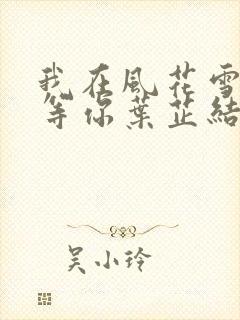 我在風花雪
等你葉芷結
吳小玲